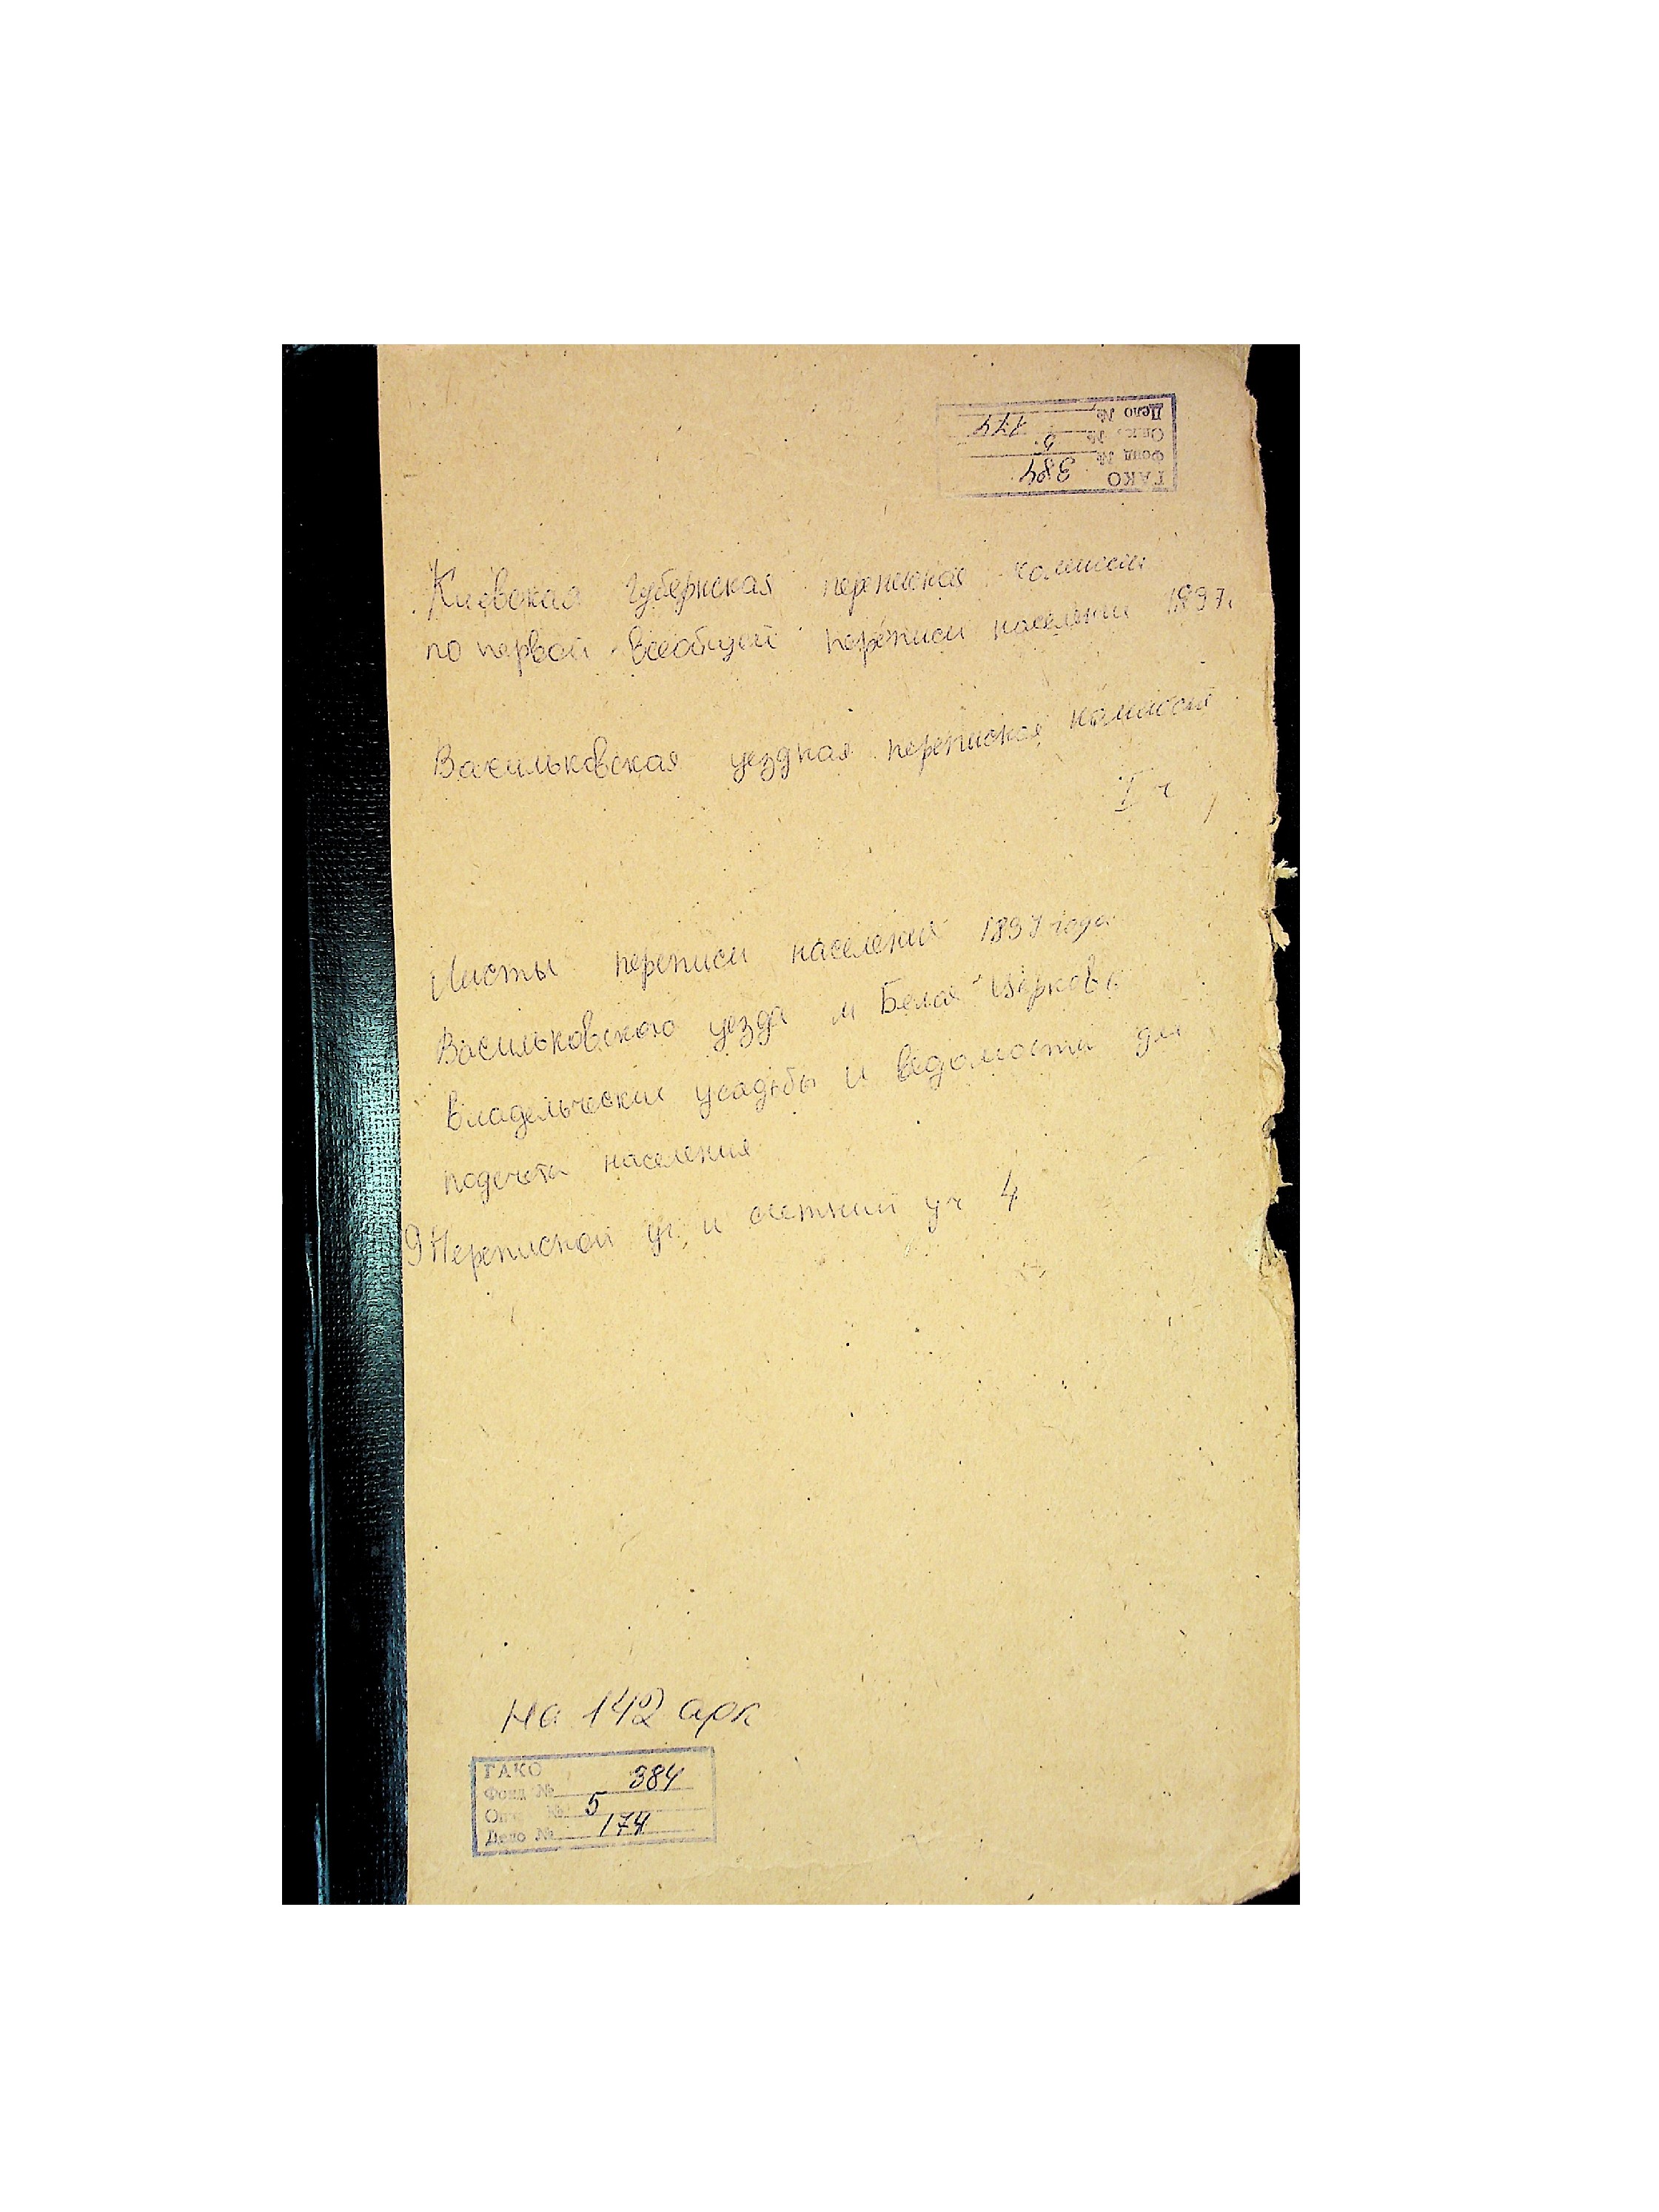 ГАКО
Фонд № 384
Опис. № 5
Дело № 174
Киевская губернская переписная комиссия
по первой всеобщей переписи населения 1897г
Васильковская уездная переписная комиссия
I ч
Листы переписи населения 1897 года
Васильковского уезда м Белая Церковь
владельческие усадьбы и ведомости для
подсчета населения
9 Переписной уч. и счетный уч 4
На 142 арк
ГАКО
Фонд № 384
Опис. № 5
Дело № 174